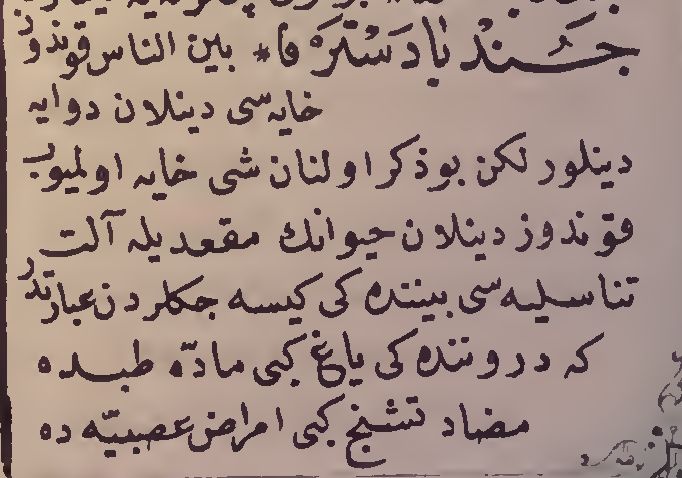 جُنْدْبَادَسْتَرَهْ فا* بين الناس قوندوز
خايه‌سى دينلان دوايه
دينلور لكن بو ذكر اولنان شى خايه اولميوب
قوندوز دينلان حيوانك مقعديله آلت
تناسليه‌سى بيننده كى كيسه جكلردن عبارتدر
كه دروننده كى ياغ كبى مادّه طبده
مضاد تشنج كبى امراض عصبيّه ده